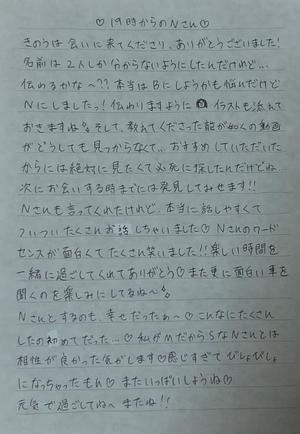 ♡19時からのNさん♡
きのうは会いに来てくださり、ありがとうございました!
名前は2人しか分からないようにしたんだけれど…
伝わるかな〜??本当はBにしようかも悩んだけど
Nにしましたっ!伝わりますように イラストも添えて
おきますね そして、教えてくださった龍が如くの動画
がどうしても見つからなくて…おすすめしていただいた
からには絶対に見たくて必死に探したんだけどね
次にお会いする時までには発見してみせます!!
Nさんも言ってくれたけれど、本当に話しやすくて
ついついたくさんお話しちゃいました♡Nさんのワード
センスが面白くてたくさん笑いました!!楽しい時間を
一緒に過ごしてくれてありがとう♡また更に面白い事を
聞くのを楽しみにしてるね〜
Nさんとするのも、幸せだったぁ〜♡こんなにたくさん
したの初めてだった…♡私がMだからSなNさんとは
相性が良かった気がします♡感じすぎてびしょびしょ
になっちゃったもん♡またいっぱいしようね♡
元気で過ごしてねへ またね!!